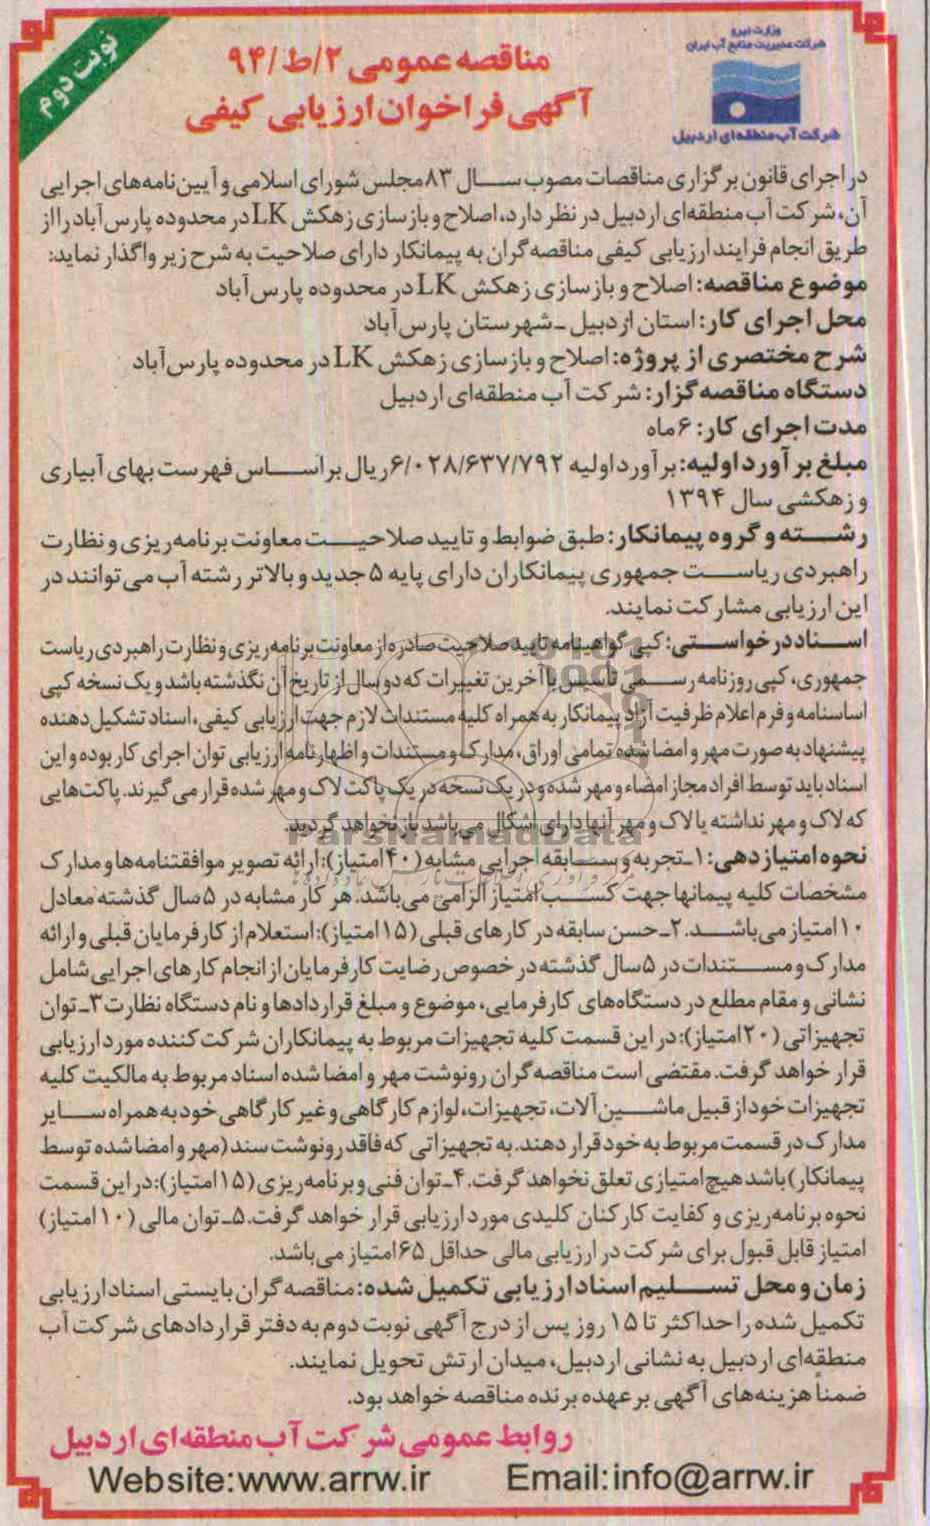 وزارت نیرو
شرکت مدیریت منابع آب ایران
شرکت آب منطقه‌ای اردبیل
نوبت دوم
مناقصه عمومی ۲/ط/۹۴
آگهی فراخوان ارزیابی کیفی
در اجرای قانون برگزاری مناقصات مصوب سال ۸۳ مجلس شورای اسلامی و آیین‌نامه‌های اجرایی
آن، شرکت آب منطقه‌ای اردبیل در نظر دارد، اصلاح و بازسازی زهکش LK در محدوده پارس‌آباد را از
طریق انجام فرایند ارزیابی کیفی مناقصه‌گران به پیمانکار دارای صلاحیت به شرح زیر واگذار نماید:
موضوع مناقصه: اصلاح و بازسازی زهکش LK در محدوده پارس‌آباد
محل اجرای کار: استان اردبیل ـ شهرستان پارس‌آباد
شرح مختصری از پروژه: اصلاح و بازسازی زهکش LK در محدوده پارس‌آباد
دستگاه مناقصه‌گزار: شرکت آب منطقه‌ای اردبیل
مدت اجرای کار: ۶ ماه
مبلغ برآورد اولیه: برآورد اولیه ۶/۰۲۸/۶۳۷/۷۹۲ ریال براساس فهرست بهای آبیاری
و زهکشی سال ۱۳۹۴
رشته و گروه پیمانکار: طبق ضوابط و تایید صلاحیت معاونت برنامه‌ریزی و نظارت
راهبردی ریاست جمهوری پیمانکاران دارای پایه ۵ جدید و بالاتر رشته آب می‌توانند در
این ارزیابی مشارکت نمایند.
اسناد درخواستی: کپی گواهینامه تایید صلاحیت صادره از معاونت برنامه‌ریزی و نظارت راهبردی ریاست
جمهوری، کپی روزنامه رسمی تأسیس با آخرین تغییرات که دو سال از تاریخ آن نگذشته باشد و یک نسخه کپی
اساسنامه و فرم اعلام ظرفیت آزاد پیمانکار به همراه کلیه مستندات لازم جهت ارزیابی کیفی، اسناد تشکیل دهنده
پیشنهاد به صورت مهر و امضا شده تمامی اوراق، مدارک و مستندات و اظهارنامه ارزیابی توان اجرای کار بوده و این
اسناد باید توسط افراد مجاز امضاء و مهر شده و در یک نسخه در یک پاکت لاک و مهر شده قرار می‌گیرند. پاکت‌هایی
که لاک و مهر نداشته یا لاک و مهر آنها دارای اشکال می‌باشد باز نخواهد گردید.
ParsNamadData
نحوه امتیازدهی: ۱ـ تجربه و سابقه اجرایی مشابه (۴۰ امتیاز): ارائه تصویر موافقتنامه‌ها و مدارک
مشخصات کلیه پیمانها جهت کسب امتیاز الزامی می‌باشد. هر کار مشابه در ۵ سال گذشته معادل
۱۰ امتیاز می‌باشد. ۲ـ حسن سابقه در کارهای قبلی (۱۵ امتیاز): استعلام از کارفرمایان قبلی و ارائه
مدارک و مستندات در ۵ سال گذشته در خصوص رضایت کارفرمایان از انجام کارهای اجرایی شامل
نشانی و مقام مطلع در دستگاه‌های کارفرمایی، موضوع و مبلغ قراردادها و نام دستگاه نظارت ۳ـ توان
تجهیزاتی (۲۰ امتیاز): در این قسمت کلیه تجهیزات مربوط به پیمانکاران شرکت کننده مورد ارزیابی
قرار خواهد گرفت. مقتضی است مناقصه‌گران رونوشت مهر و امضا شده اسناد مربوط به مالکیت کلیه
تجهیزات خود از قبیل ماشین‌آلات، تجهیزات، لوازم کارگاهی و غیر کارگاهی خود به همراه سایر
مدارک در قسمت مربوط به خود قرار دهند. به تجهیزاتی که فاقد رونوشت سند (مهر و امضا شده توسط
پیمانکار) باشد هیچ امتیازی تعلق نخواهد گرفت. ۴ـ توان فنی و برنامه‌ریزی (۱۵ امتیاز): در این قسمت
نحوه برنامه‌ریزی و کفایت کارکنان کلیدی مورد ارزیابی قرار خواهد گرفت. ۵ـ توان مالی (۱۰ امتیاز)
امتیاز قابل قبول برای شرکت در ارزیابی مالی حداقل ۶۵ امتیاز می‌باشد.
زمان و محل تسلیم اسناد ارزیابی تکمیل شده: مناقصه‌گران بایستی اسناد ارزیابی
تکمیل شده را حداکثر تا ۱۵ روز پس از درج آگهی نوبت دوم به دفتر قراردادهای شرکت آب
منطقه‌ای اردبیل به نشانی اردبیل، میدان ارتش تحویل نمایند.
ضمناً هزینه‌های آگهی بر عهده برنده مناقصه خواهد بود.
روابط عمومی شرکت آب منطقه‌ای اردبیل
Website:www.arrw.ir Email:info@arrw.ir